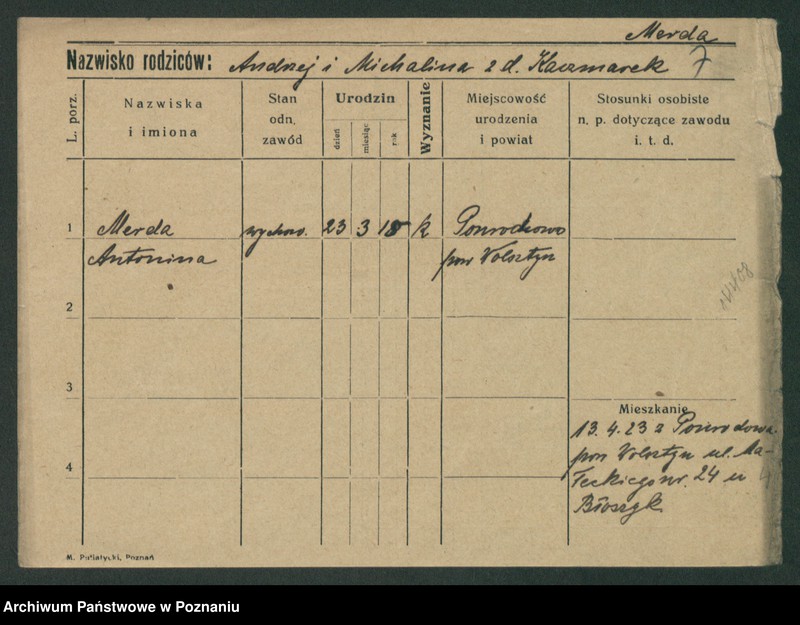 Merda
Nazwisko rodziców: Andrzej i Michalina z d. Kaczmarek 7
L. porz.
Nazwiska
i imiona
Stan
odn.
zawód
Urodzin
dzień
miesiąc
rok
Wyznanie
Miejscowość
urodzenia
i powiat
Stosunki osobiste
n. p. dotyczące zawodu
i. t. d.
1
Merda
wychow.
23
3
18
k
Antonina
pow Wolsztyn
2
3
4
Mieszkanie
13. 4. 23 z
pow Wolsztyn ul. Ma-
teckiego nr. 24 u
M. Putiatycki, Poznań
Archiwum Państwowe w Poznaniu